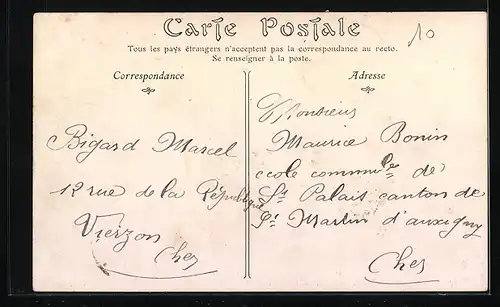 Carte Postale
Tous les pays étrangers n'acceptent pas la correspondance au recto.
Se renseigner à la poste.
10
Correspondance
Adresse
Bigard Marcel
12 rue de la République
Vierzon
Cher
Monsieur
Maurice Bonin
école commu^le de
S^t Palais canton de
S^t Martin d'auxigny
Cher